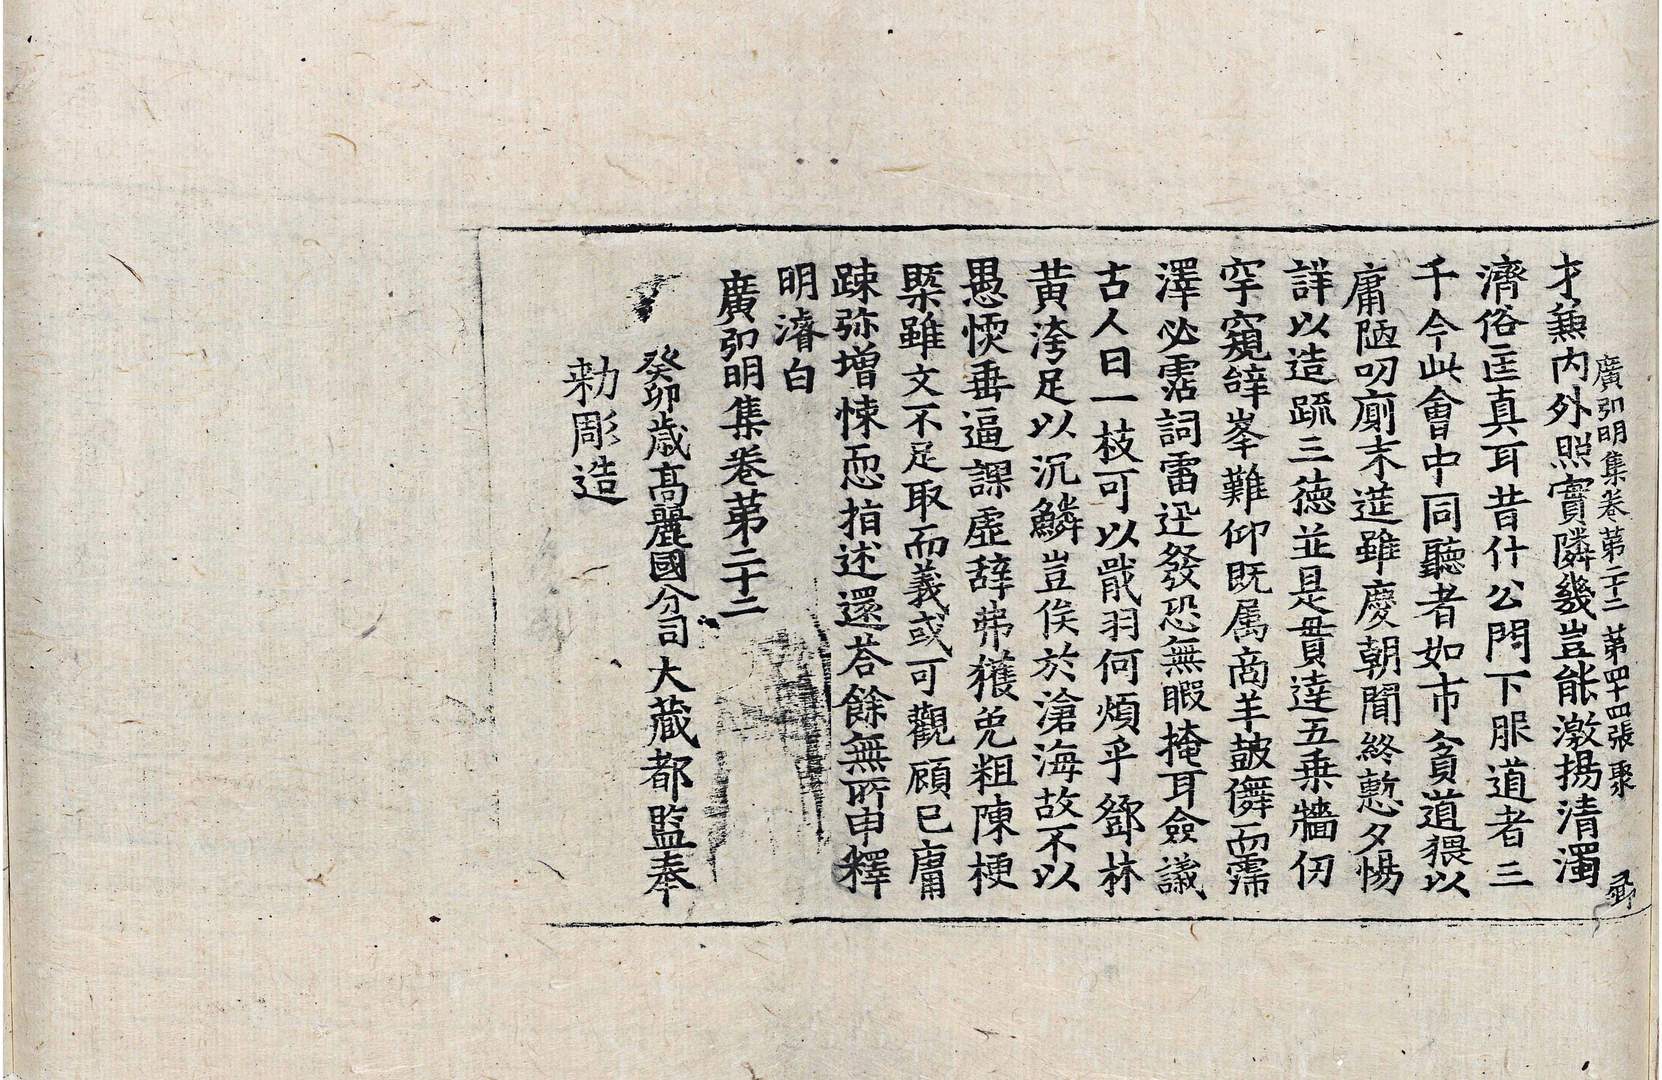 廣弘明集卷第二十二 第四十四張 聚
才兼内外照實隣幾豈能激揚清濁
濟俗匡真耳昔什公門下服道者三
千今此會中同聽者如市貧道猥以
庸陋叨廁末莚雖慶朝聞終慙夕惕
詳以造疏三德並是貫達五乗牆仞
罕窺辥峯難仰既属商羊鼓儛而霈
澤必霑詞雷迅發恐無暇掩耳僉議
古人曰一枝可以戢羽何煩乎鄧林
黄洿足以沉鱗豈俟於滄海故不以
愚懦垂逼課虛辞弗獲免粗陳梗
槩雖文不足取而義或可觀顧已庸
踈弥增悚恧指述還荅餘無所申釋
明濬白
廣弘明集卷第二十二
癸卯歳高麗國分司大藏都監奉
勑彫造